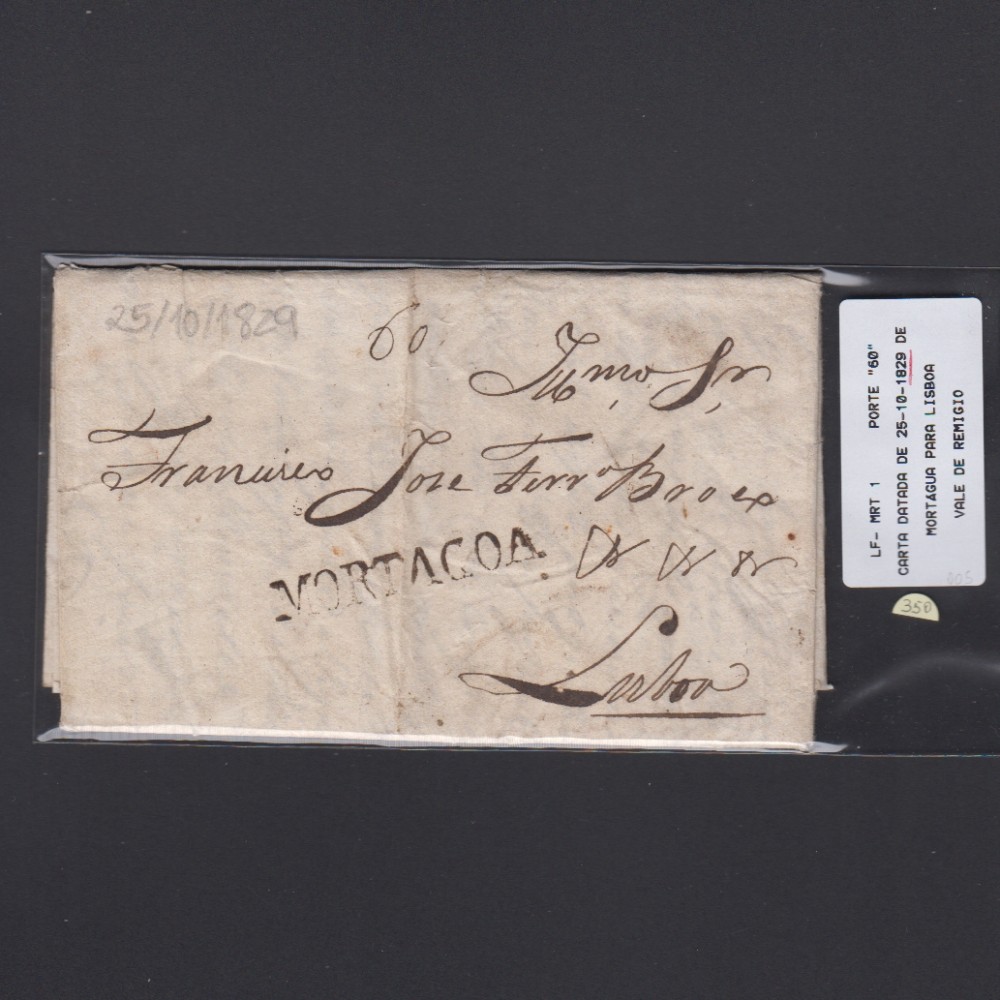 25/10/1829
60
Illmo. Sr.
Francisco Joze Ferra Bro ex
MORTAGOA
Lisboa
LF- MRT 1 PORTE "60"
CARTA DATADA DE 25-10-1829 DE
MORTÁGUA PARA LISBOA
VALE DE REMIGIO
005
350